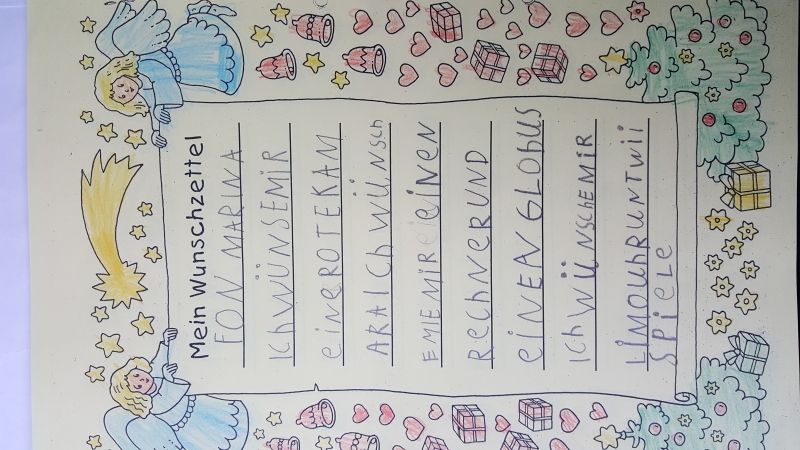 Mein Wunschzettel
FON MARINA
Ich WÜNSEMIR
eineROTEKAM
ARAICh WÜNSch
EMEMIR einen
RechNERUND
eiNEN GLObUS
Ich WÜNScheMiR
LiMOUhRUNTWii
SPieLe